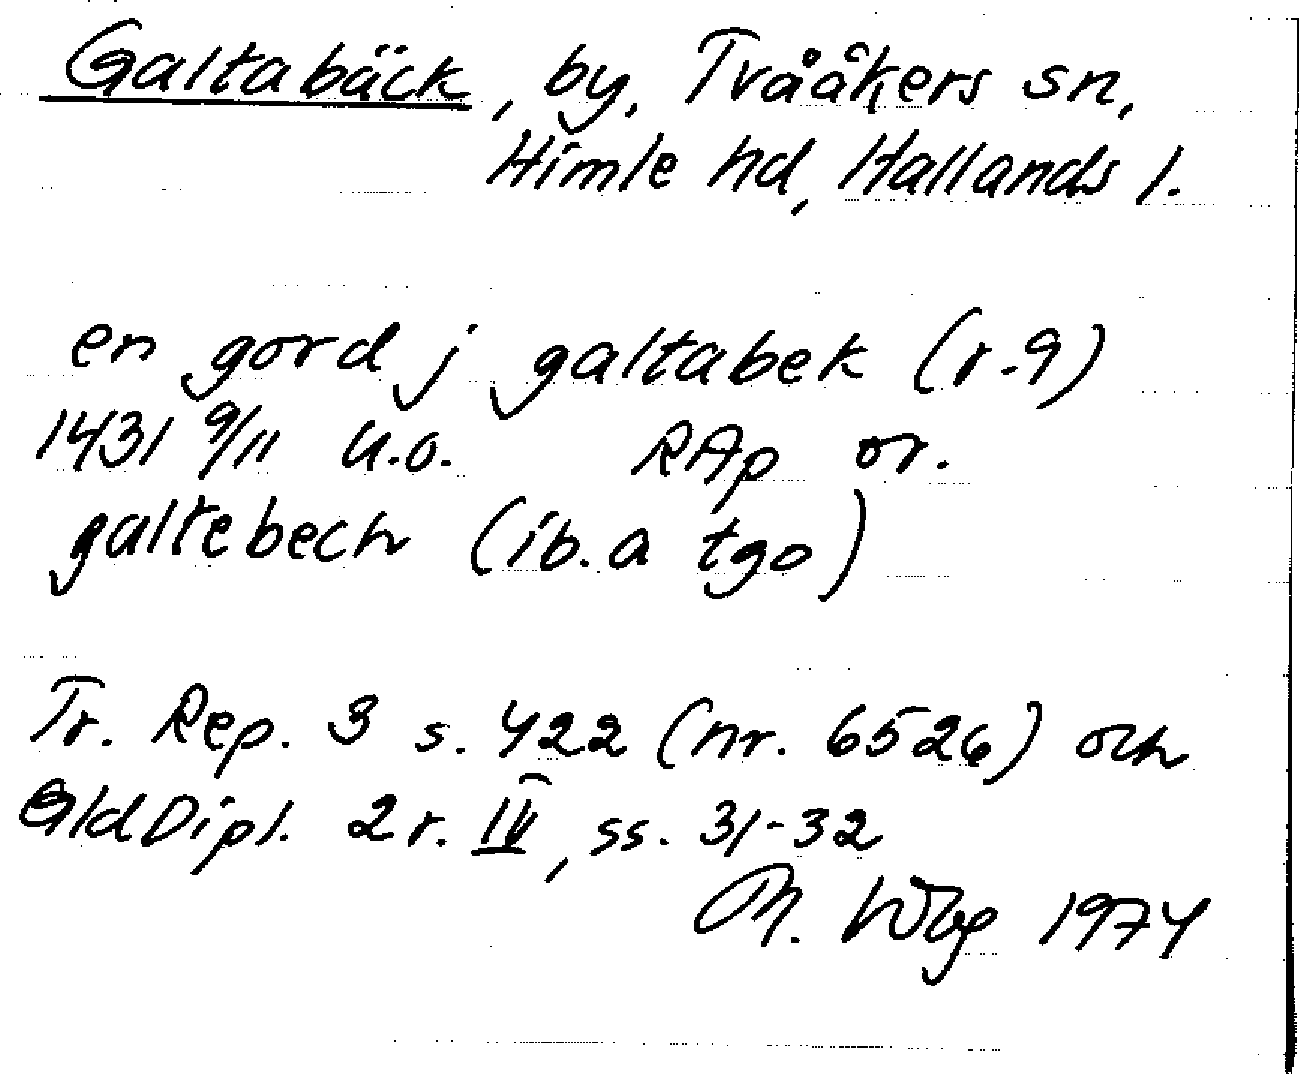 Galtabäck, by, Tvååkers sn,
Himle hd, Hallands l.
en gord j galtabek (r.9)
1431 9/11 u.o. RAp or.
galtebech (ib. a tgo)
Tr. Rep. 3 s. 422 (nr. 6526) och
GldDipl. 2r. IV, ss. 31-32
Th. Wbg 1974